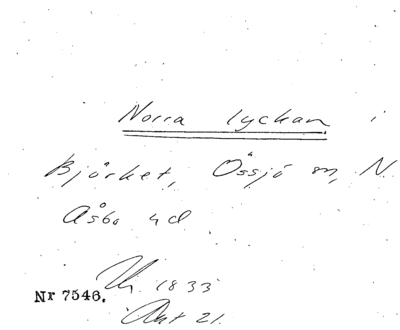 Norra lyckan i
Björket, Össjö sn, N.
Åsbo hd
Lk. 1833
Nr 7546.
Akt 21.